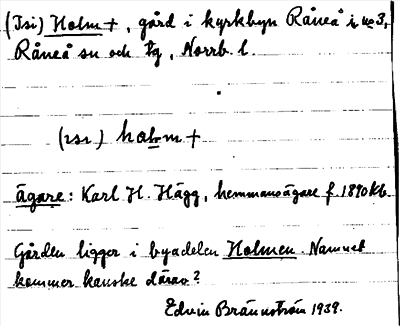 (Isi) Holm +, gård i kyrkbyn Råneå i, no 3,
Råneå sn och tg, Norrb. l.
(ɪsɪ) halm +
ägare: Karl H. Hägg, hemmansägare f. 1890 kb.
Gården ligger i byadelen Holmen. Namnet
kommer kanske därav?
Edvin Brännström 1939.